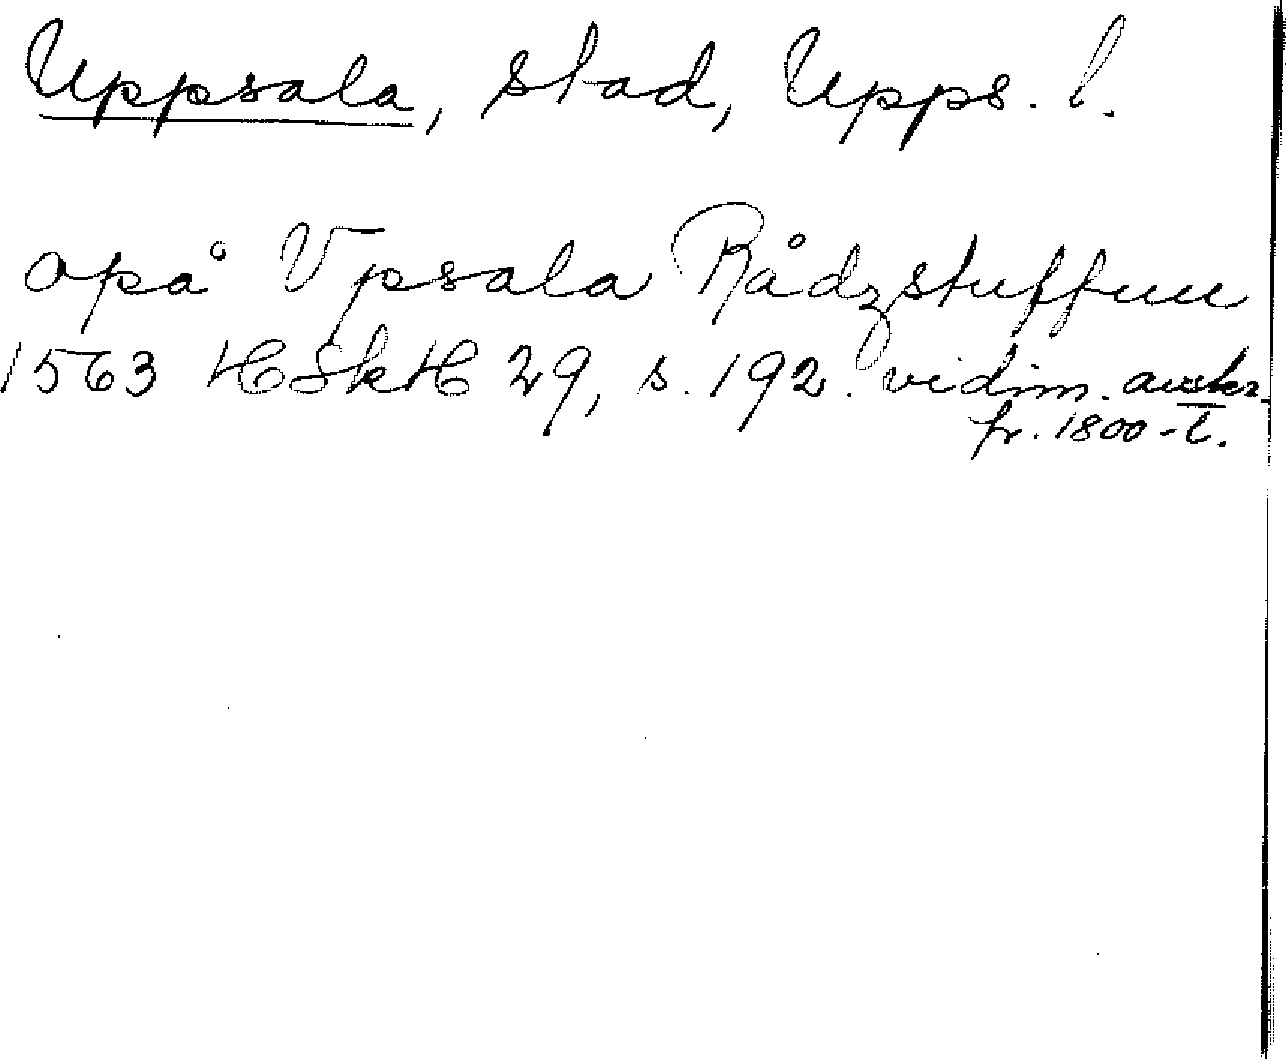 Uppsala, stad, Upps. l.
opå Vpsala Rådzstuffuu
1563 HSkH 29, s. 192. vidim. avskr.
fr. 1800-t.